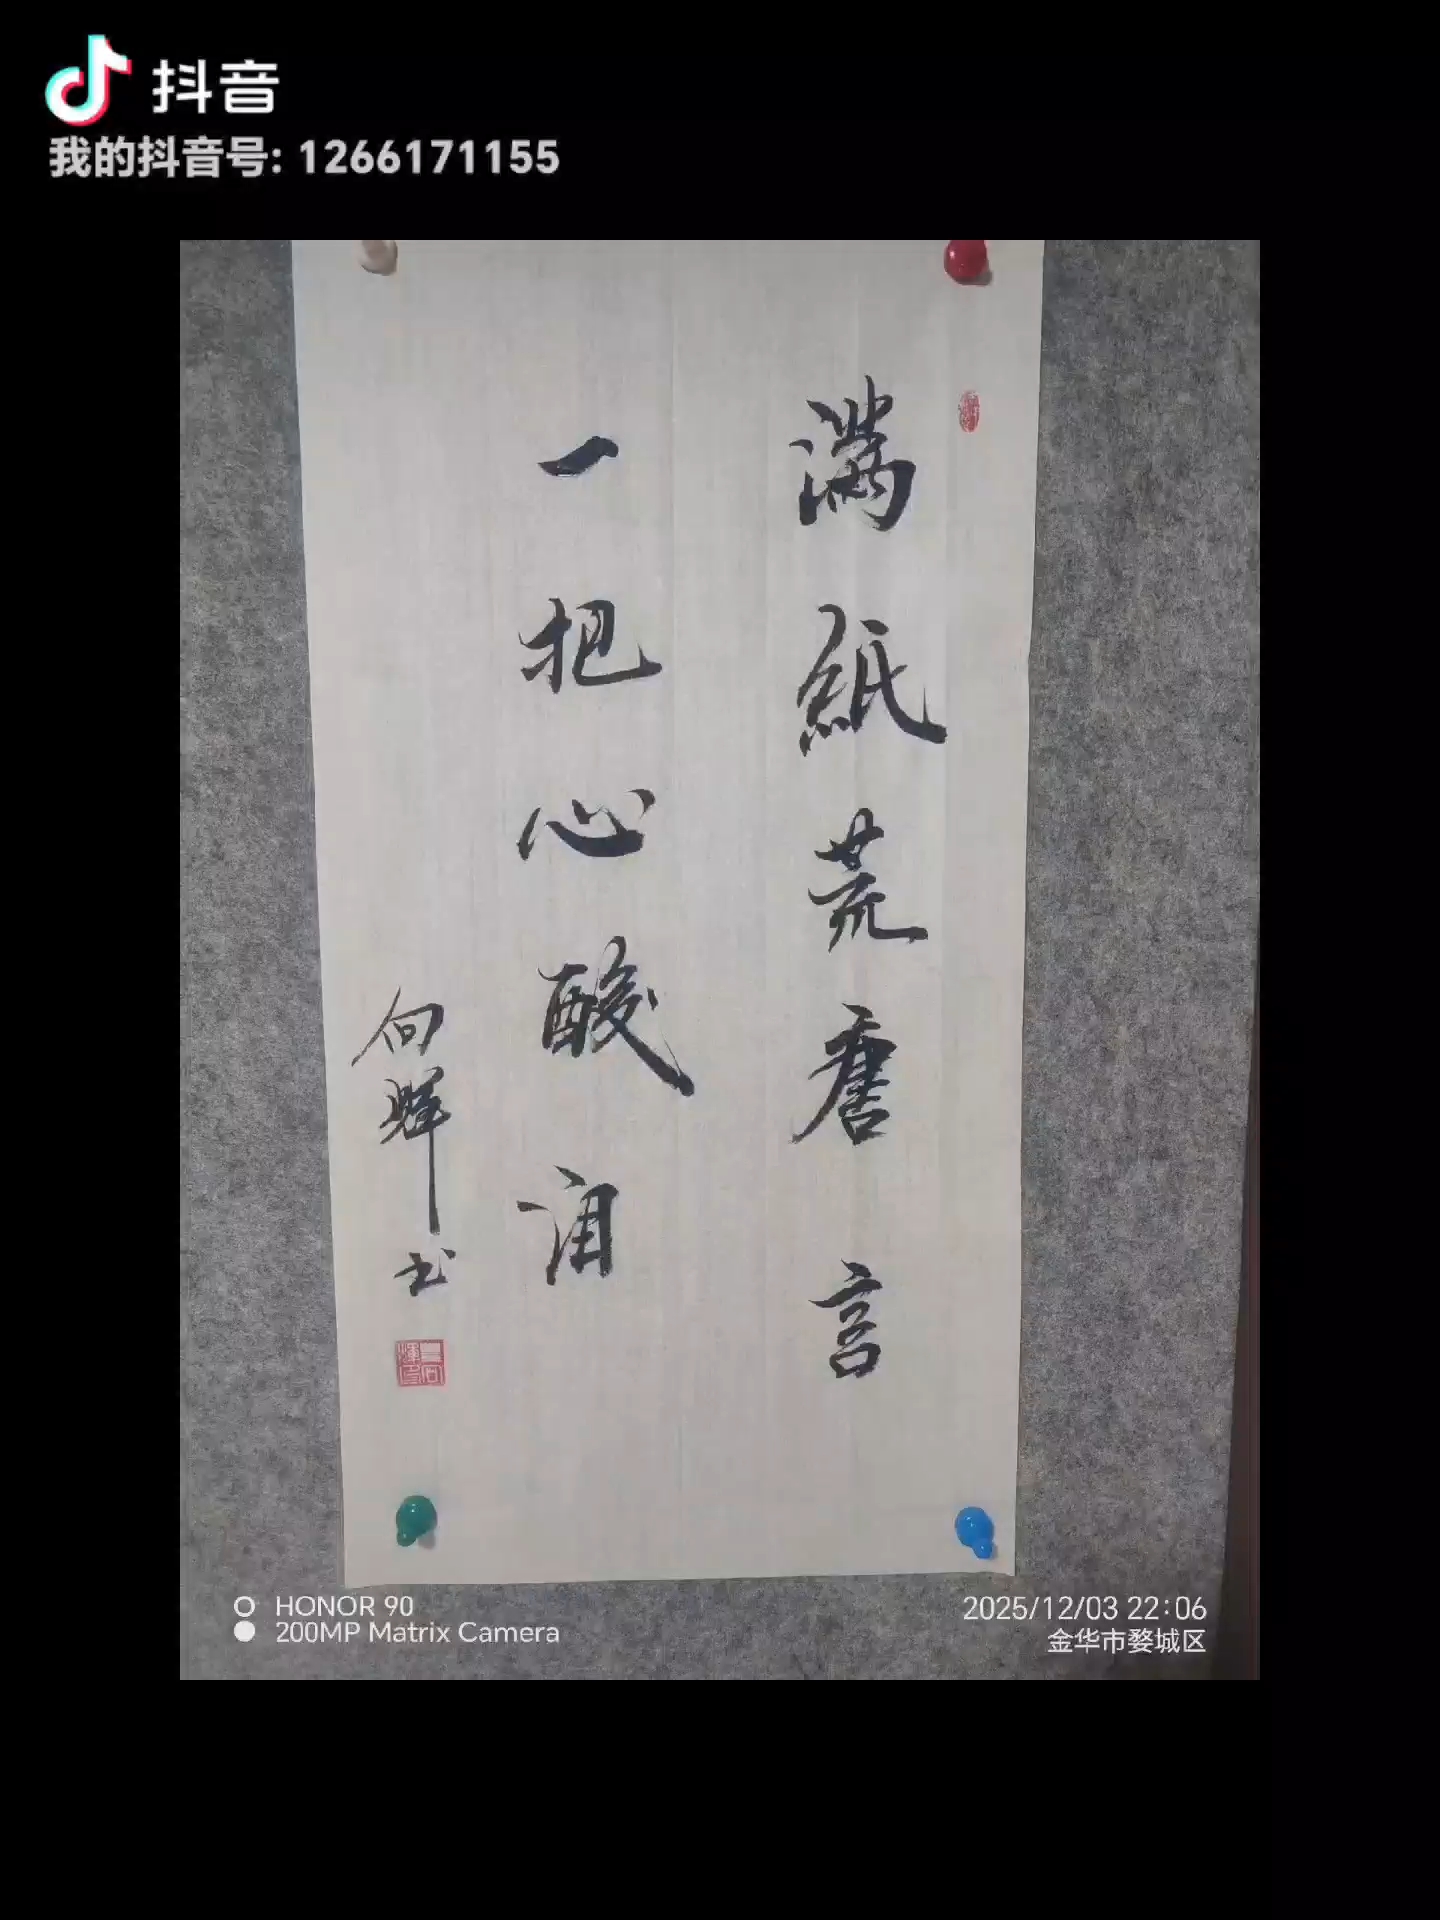 抖音
我的抖音号: 1266171155
满紙荒唐言
一把心酸泪
向辉书
HONOR 90
200MP Matrix Camera
2025/12/03 22:06
金华市婺城区